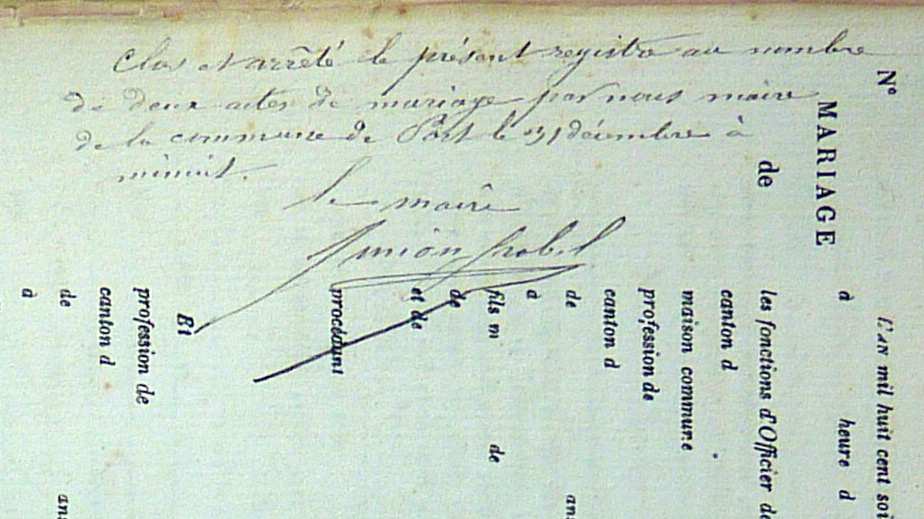 Clos et arrêté le présent registre au nombre
de deux actes de mariage par nous maire
de la commune de Port le 31 décembre à
minuit.
le maire
N°
MARIAGE
de
L'AN mil huit cent soi
à heure d
les fonctions d'Officier de
canton d
maison commune
profession de
canton d
de ans
à
fils m de
de
et de
procédant
Et
profession de
canton d
de ans
à